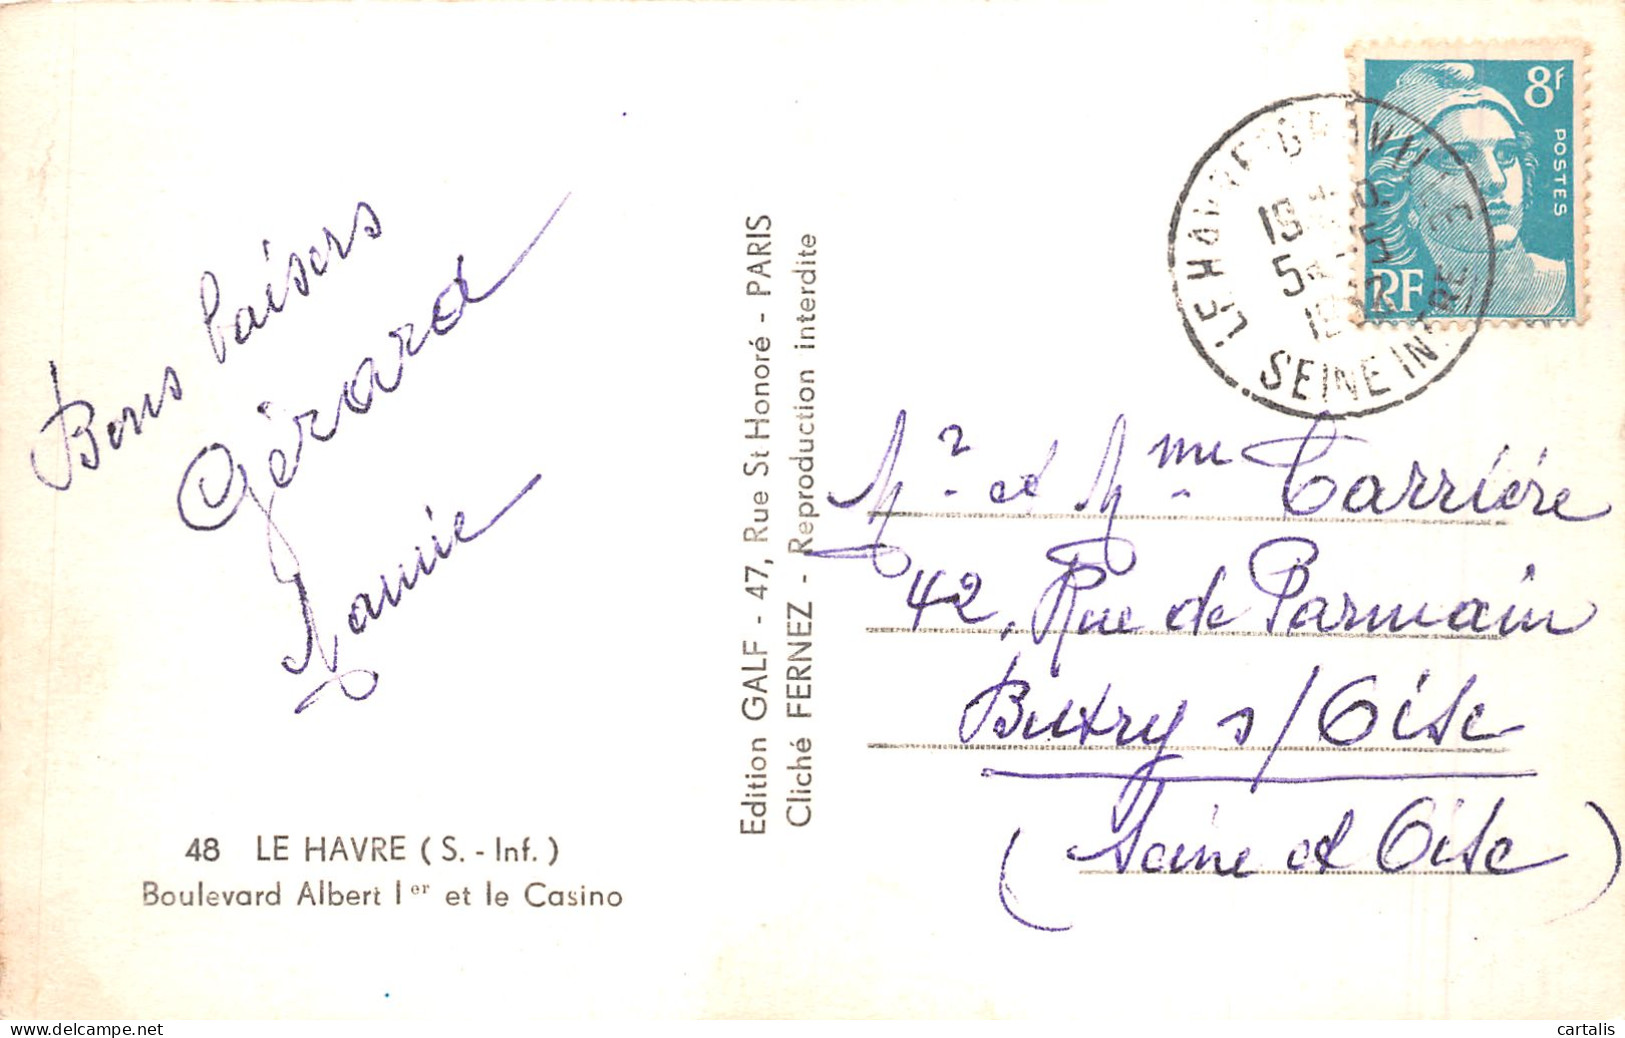 Bons baisers
Gérard
48 LE HAVRE ( S. - Inf. )
Boulevard Albert Ier et le Casino
Edition GALF - 47, Rue St Honoré - PARIS
Cliché FERNEZ - Reproduction interdite
8f
POSTES
RF
LE HAVRE
5 - 5
SEINE INFRE
Mr. et Mme - Carrière
42, Rue de Parmain
Butry s/ Oise
(Seine et Oise)
cartalis
www.delcampe.net